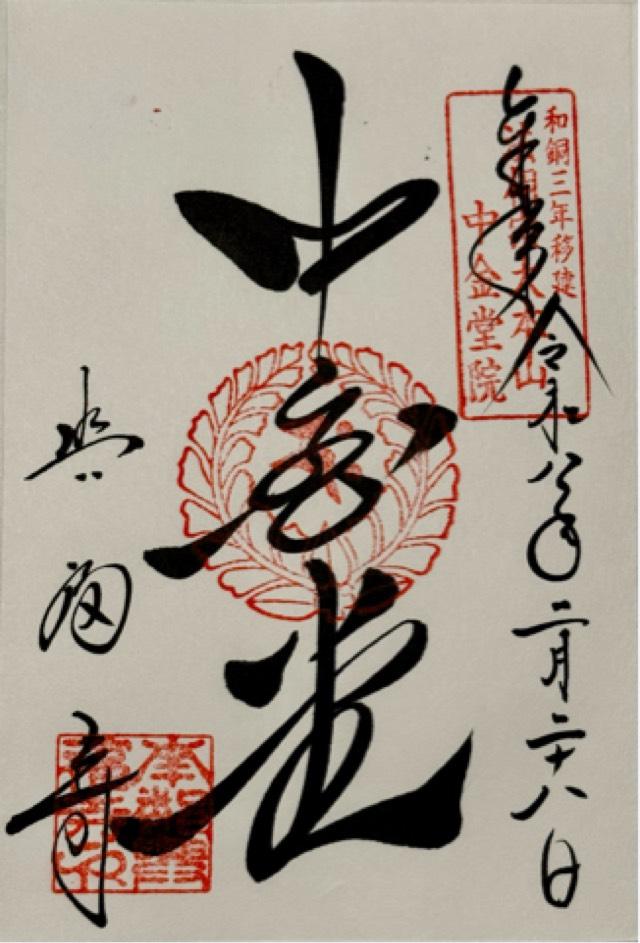 奉拝
令和八年二月二十八日
和銅三年移建
法相宗大本山
中金堂院
中金堂
興福寺